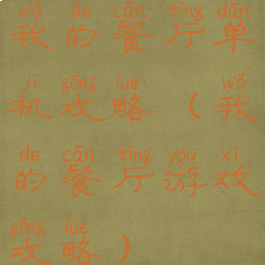 wǒ de cān tīng dān
我的餐厅单
jī gōng lüè wǒ
机攻略（我
de cān tīng yóu xì
的餐厅游戏
gōng lüè
攻略）